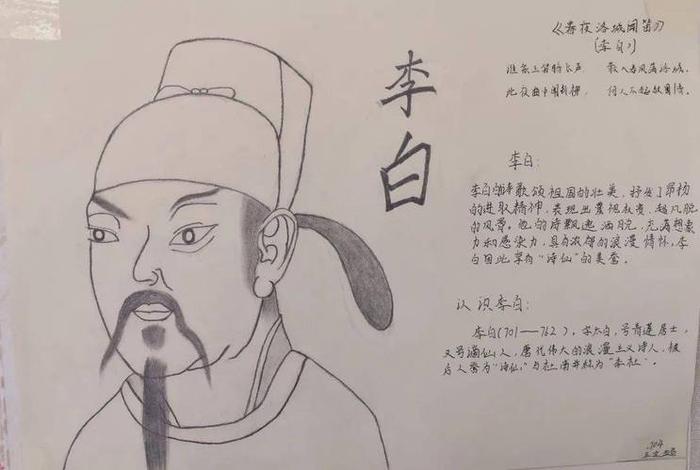 《春夜洛城闻笛》
(李白)
谁家玉笛暗飞声 散入春风满洛城。
此夜曲中闻折柳, 何人不起故园情。
李白
李白:
李白歌颂祖国的壮美,抒发了昂扬
的进取精神,表现出蔑视权贵、超凡脱
的风骨。他的诗飘逸洒脱,充满想象
力和感染力,具有浓郁的浪漫情怀,李
白因此享有“诗仙”的美誉。
认识李白:
李白(701——762),字太白,号青莲居士,
又号谪仙人,唐代伟大的浪漫主义诗人,被
后人誉为“诗仙”,与杜甫并称为“李杜”。
704